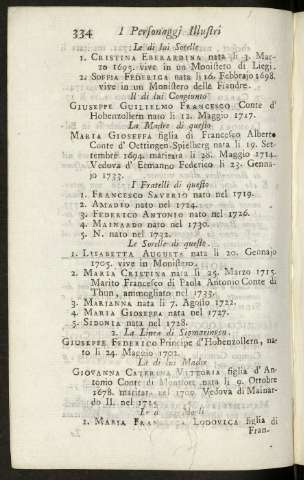 334 I Personaggi Illustri
Le di lui Sorelle
1. CRISTINA EBERARDINA nata li 3. Mar-
zo 1695. vive in un Monistero di Liegi.
2. SOFFIA FEDERIGA nata li 16. Febbrajo 1698.
vive in un Monistero delle Fiandre.
Il di lui Congiunto
GIUSEPPE GUILIELMO FRANCESCO Conte d'
Hohenzollern nato li 12. Maggio 1717.
La Madre di questo
MARIA GIOSEFFA figlia di Francesco Alberto
Conte d' Oettingen-Spielberg nata li 19. Set-
tembre 1694. maritata li 28. Maggio 1714.
Vedova d' Ermanno Federico li 23. Genna-
jo 1733.
I Fratelli di questo
1. FRANCESCO SAVERIO nato nel 1719.
2. AMADIO nato nel 1724.
3. FEDERICO ANTONIO nato nel 1726.
4. MAINARDO nato nel 1730.
5. N. nato nel 1732.
Le Sorelle di questo
1. LISABETTA AUGUSTA nata li 20. Gennajo
1705. vive in Monistero.
2. MARIA CRISTINA nata li 25. Marzo 1715.
Marito Francesco di Paola Antonio Conte di
Thun, ammogliato nel 1733.
3. MARIANNA nata li 7. Agosto 1722.
4. MARIA GIOSEPPA nata nel 1727.
5. SIDONIA nata nel 1728.
2. La Linea di Sigmaringen.
GIUSEPPE FEDERICO Principe d'Hohenzollern, na-
to li 24. Maggio 1702.
La di lui Madre
GIOVANNA CATERINA VITTORIA figlia d' An-
tonio Conte di Montfort nata li 9. Ottobre
1678. maritat nel 1700. Vedova di Mainar-
do II. nel 1715.
Le
2. MARIA LODOVICA figlia di
Fran-